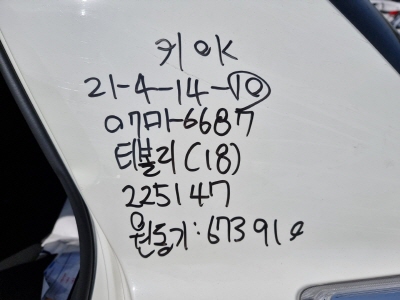 키 OK
21-4-14-10
07마6687
티볼리(18)
225147
원동기:673910